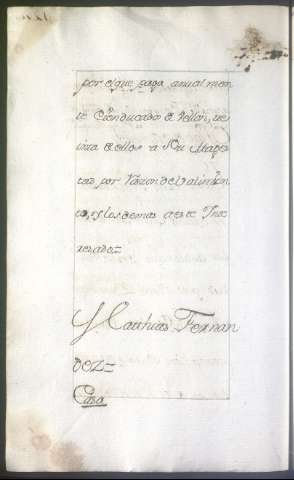 por el que paga anualmen
te Cien ducados de Vellon, tre
inta de ellos a Su Mages
tad, por Razon del
y los demas a este Inte
resado=
S. Matthias Fernan
dez=
Casa